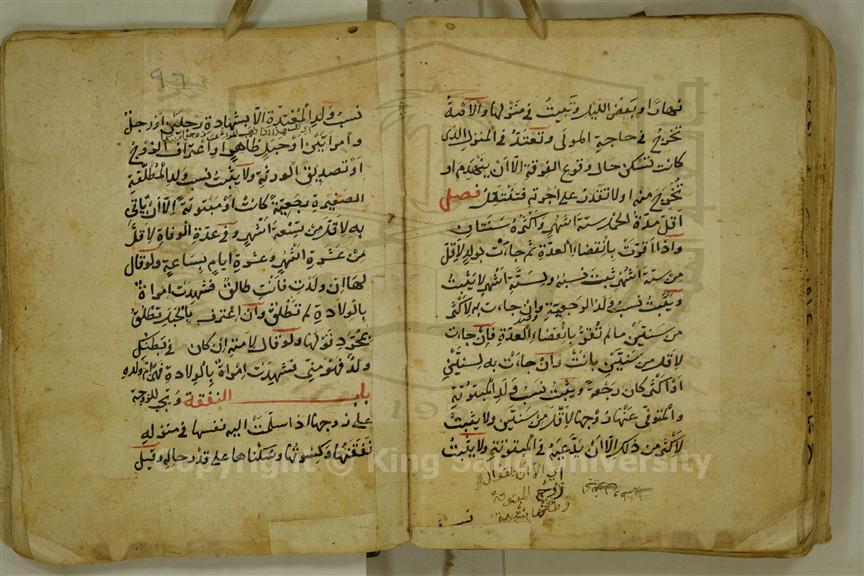 نهارا وبعض الليل وتبيت في منزلها والامة
تخرج في حاجة المولى وتعتد في المنزل الذى
كانت تسكن حال وقوع الفرقة الا ان ينهدم او
تخرج منه او لا تقدر على اجرته فتنتقل فصل
اقل مدة الحمل ستة اشهر واكثره سنتان
واذا اقرت بانقضاء العدة ثم جاءت بولد لاقل
من ستة اشهر ثبت نسبه ولستة اشهر لا يثبت
ويثبت نسب ولد الرجعية وان جاءت به لاكثر
من سنتين ما لم تقر بانقضاء العدة فان جاءت
لاقل من سنتين بانت وان جاءت به لسنتين
او اكثر كان رجعة ويثبت نسب ولد المبتوتة
والمتوفى عنها زوجها لاقل من سنتين ولا يثبت
لاكثر من ذلك الا ان يدعيه في المبتوتة ولا يثبت
اي الا ان يقول
زوج المبتوتة
وطئتها بشبهة
نسب
٩٦
نسب ولد المعتدة الا بشهادة رجلين او رجل
وامراتين او حبل ظاهر او اعتراف الزوج
او تصديق الورثة ولا يثبت نسب ولد المطلقة
الصغيرة رجعية كانت او مبتوتة الا ان ياتي
به لاقل من تسعة اشهر وفي عدة الوفاة لاقل
من عشرة اشهر وعشرة ايام بساعة ولو قال
لها ان ولدت فانت طالق فشهدت امراة
بالولادة لم تطلق وان اعترف بالحبل تطلق
بمجرد قولها ولو قال لامته ان كان في بطنك
ولد فهو مني فشهدت امراة بالولادة فهي ام ولده
باب النفقة وتجب للزوجة
على زوجها اذا سلمت اليه نفسها في منزله
نفقتها وكسوتها وسكناها على قدر حاله وقيل
Copyright © King Saud University